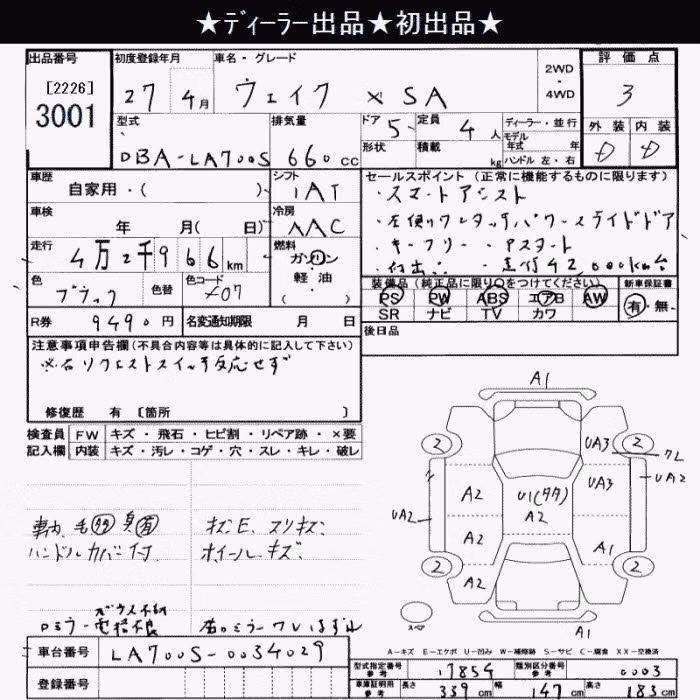 ★ディーラー出品★初出品★
出品番号 初度登録年月 車名・グレード 評価点
[2226]
3001
27 4月 ウェイク XSA
2WD・4WD
3
型式 排気量 ドア 定員 ディーラー・並行 外装 内装
DBA-LA700S 660cc 5 4人
形状 積載 kg
モデル年式 年
ハンドル 左・右
D D
車歴 シフト セールスポイント(正常に機能するものに限ります)
自家用・( ) IAT
・スマートアシスト
車検 冷房
年 月( 日) AAC
・左側ワンタッチパワースライドドア
・キーフリー ・Pスタート
走行 燃料
4万2千966km
ガソリン・軽油
・走行42,000km台
色 色替 色コード
ブラック X07
装備品(純正品に限り○をつけてください) 新車保証書
PS PW ABS エアB AW 有・無
SR ナビ TV カワ
R券 9490円 名変通知期限 月 日
後日品
注意事項申告欄(不具合内容等は具体的に記入して下さい)
※右リクエストスイッチ反応せず
修復歴 有 [箇所 ]
検査員 FW キズ・飛石・ヒビ割・リペア跡・×要
記入欄 内装 キズ・汚レ・コゲ・穴・スレ・キレ・破レ
車内 毛 臭(有) キズE、スリキズ
ハンドルカバー付 ホイールキズ
A1
2 UA3 2
クレ
A2 U1(タタ) UA3 UA2
UA2 A2
A2 A1
2 A2 2
スペア
A1
A-キズ E-エクボ U-凹み W-補修跡 S-サビ C-腐食 XX-交換済
車台番号 LA700S-0034029
登録番号
型式指定番号 参考 17854 類別区分番号 参考 0003
車庫証明用 参考 長さ 339cm 幅 147cm 高さ 183cm